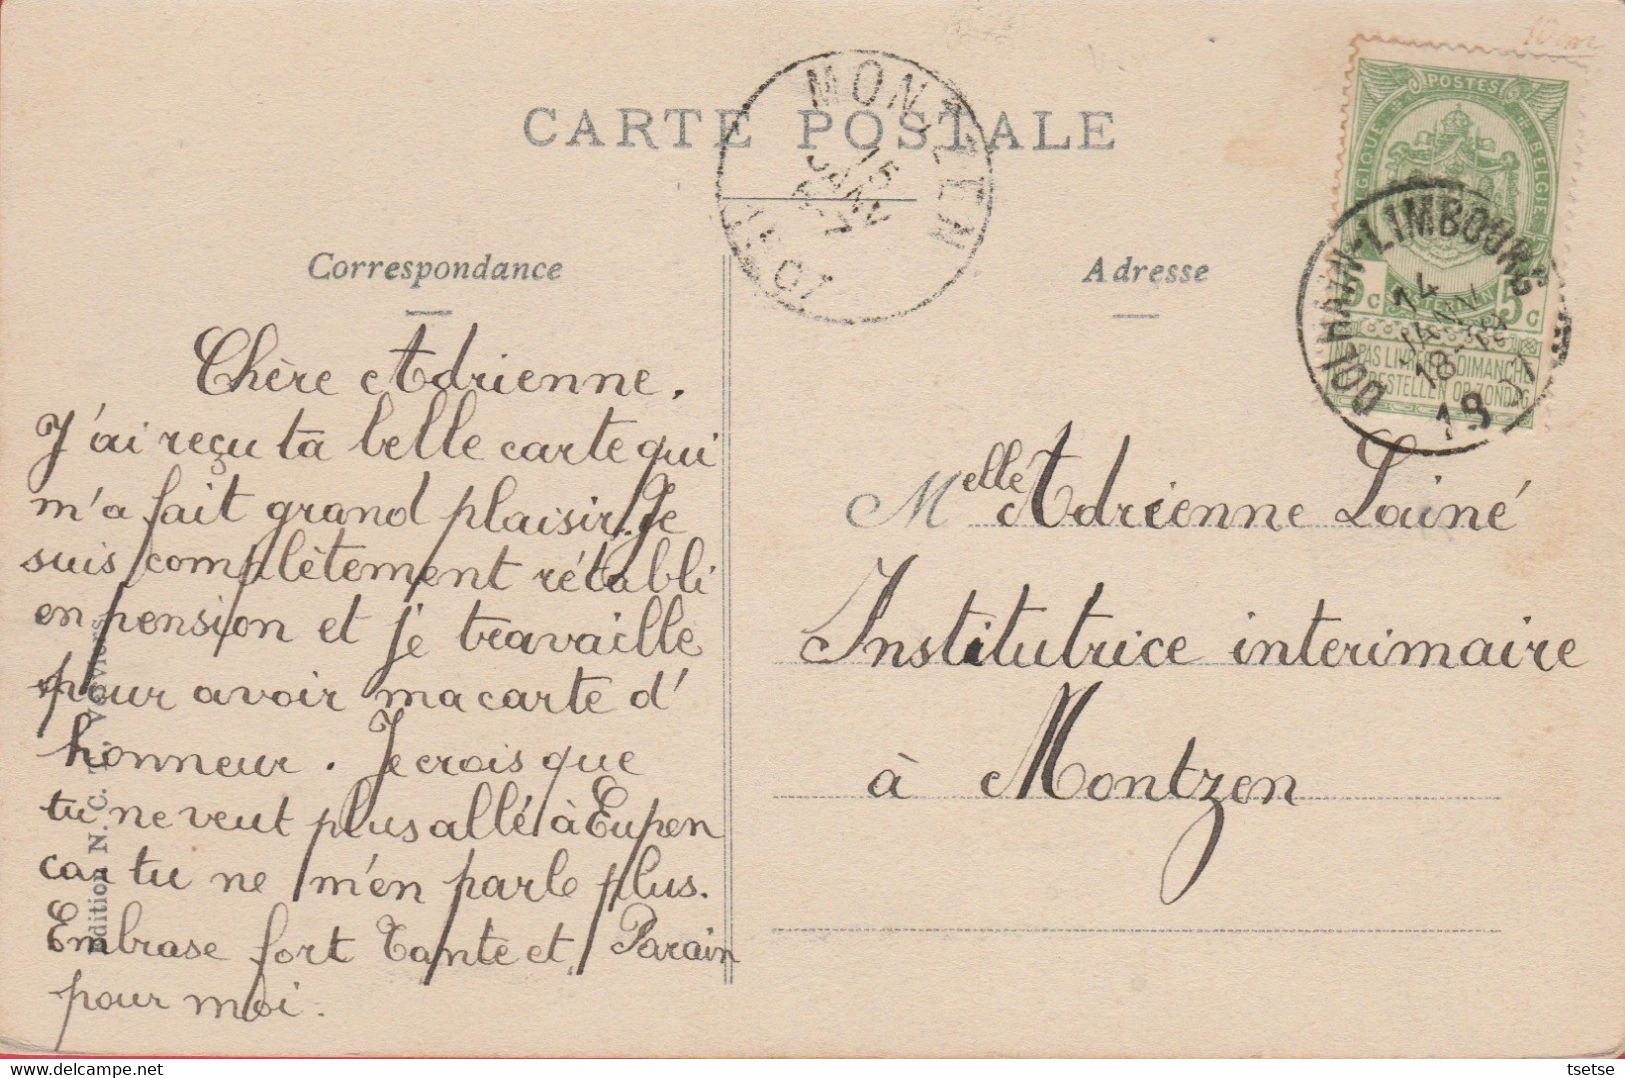 CARTE POSTALE
MONTZEN
15
JANV
1907
POSTES
BELGIQUE
BELGIE
5c
5c
NE PAS LIVRER LE DIMANCHE
NIET BESTELLEN OP ZONDAG
DOLHAIN-LIMBOURG
14
JANV
18-19
19 07
Correspondance
Chère Adrienne.
J'ai reçu ta belle carte qui
m'a fait grand plaisir. Je
suis complètement rétabli
en pension et je travaille
pour avoir ma carte d'
honneur. Je crois que
tu ne veut plus allé à Eupen
car tu ne m'en parle plus.
Embrase fort Tante et Parain
pour moi.
Edition N. C. Verviers
Adresse
Melle Adrienne Lainé
Institutrice interimaire
à Montzen
tsetse